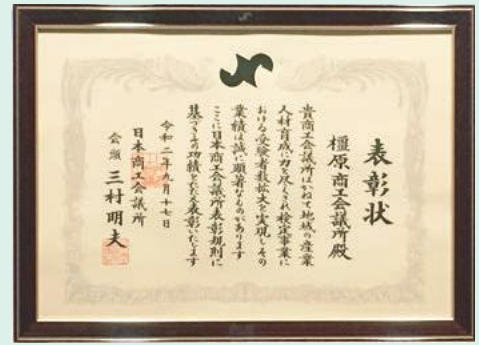 表彰状
橿原商工会議所殿
貴商工会議所はかねて地域の産業
人材育成に力を尽くされ検定事業に
おける受験者数拡大を実現しその
業績は誠に顕著なものがあります
ここに日本商工会議所表彰規則に
基づきその功績をたたえ表彰いたします
令和二年九月十七日
日本商工会議所
会頭 三村明夫